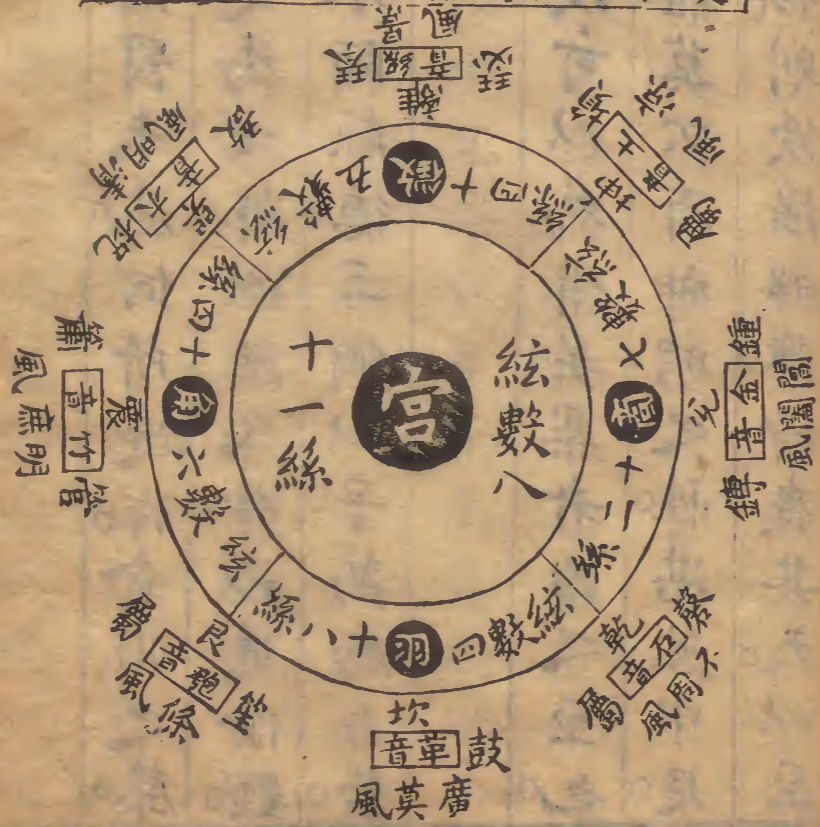 宮
絃數八
十一絲
徵
絃數五十四絲
商
絃數七十二絲
羽
絃數四十八絲
角
絃數六十四絲
離
琴 絲音 瑟
景風
坤
塤 土音 屬
涼風
兌
鍾 金音 鎛
閶闔風
乾
磬 石音 屬
不周風
坎
鼓 革音
廣莫風
艮
笙 匏音 屬
條風
震
管 竹音 簫
明庶風
巽
柷 木音 敔
清明風